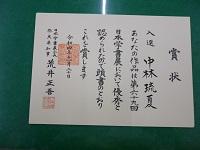 賞状
入選 中林琉夏
あなたの作品は第六十九
日本学書展において優秀と
認められたので頭書のとおり
これを賞します
令和四年
荒井正吾